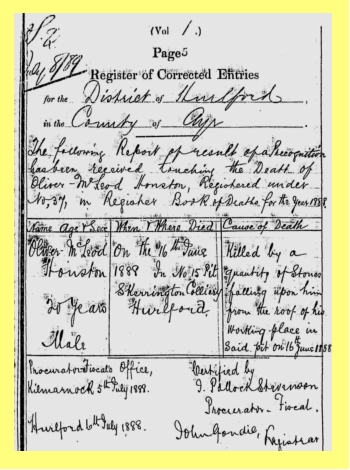 (Vol 1.)
Page5
Register of Corrected Entries
for the District of Hurlford
in the County of Ayr
The following Report of result of a Precognition
has been received touching the Death of
Oliver McLeod Houston, Registered under
No. 37, in Register Book of Deaths for the Year 1888
Name Age & Sex When & Where Died Cause of Death
Oliver McLeod On the 16th June Killed by a
Houston 1888 In No 15 Pit quantity of Stones
Skerrington Colliery falling upon him
20 Years Hurlford from the roof of his
working place in
Male said pit on 16th June 1888
Procurator Fiscal's Office, Certified by
Kilmarnock 5th July 1888. J. Pollock Stevenson
Procurator-Fiscal.
Hurlford 6th July 1888. John Goudie, Registrar